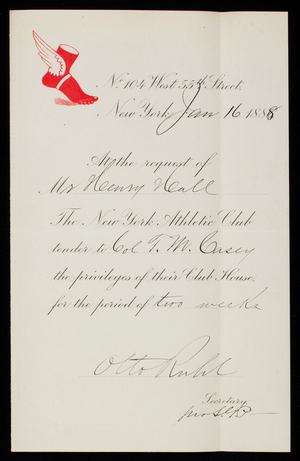 No. 104 West 55th Street,
New York, Jan 16 1888
At the request of
Mr Henry Hall
The New York Athletic Club
tender to Col T. M. Casey
the privileges of their Club House,
for the period of two weeks
Otto Ruhl
Secretary